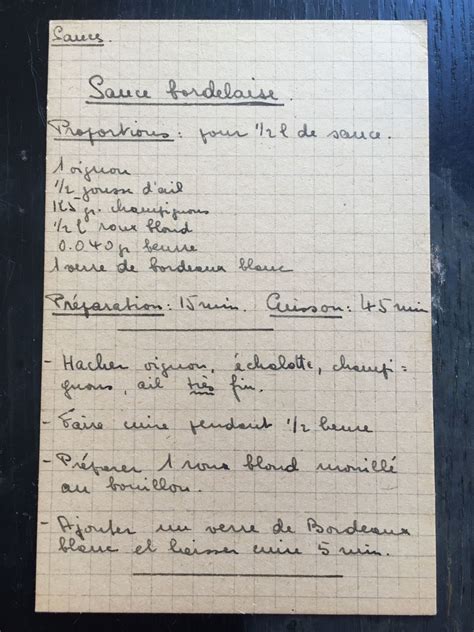 Sauces.
Sauce bordelaise.
Proportions: pour 1/2 l de sauce.
1 oignon
1/2 gousse d'ail
125 gr. champignons
1/2 l roux blond
0.040 gr beurre
1 verre de bordeaux blanc
Préparation: 15 min. Cuisson: 45 min
- Hacher oignon, échalotte, champi-
gnons, ail très fin.
- Faire cuire pendant 1/2 heure
- Préparer 1 roux blond mouillé
au bouillon.
- Ajouter un verre de Bordeaux
blanc et laisser cuire 5 min.